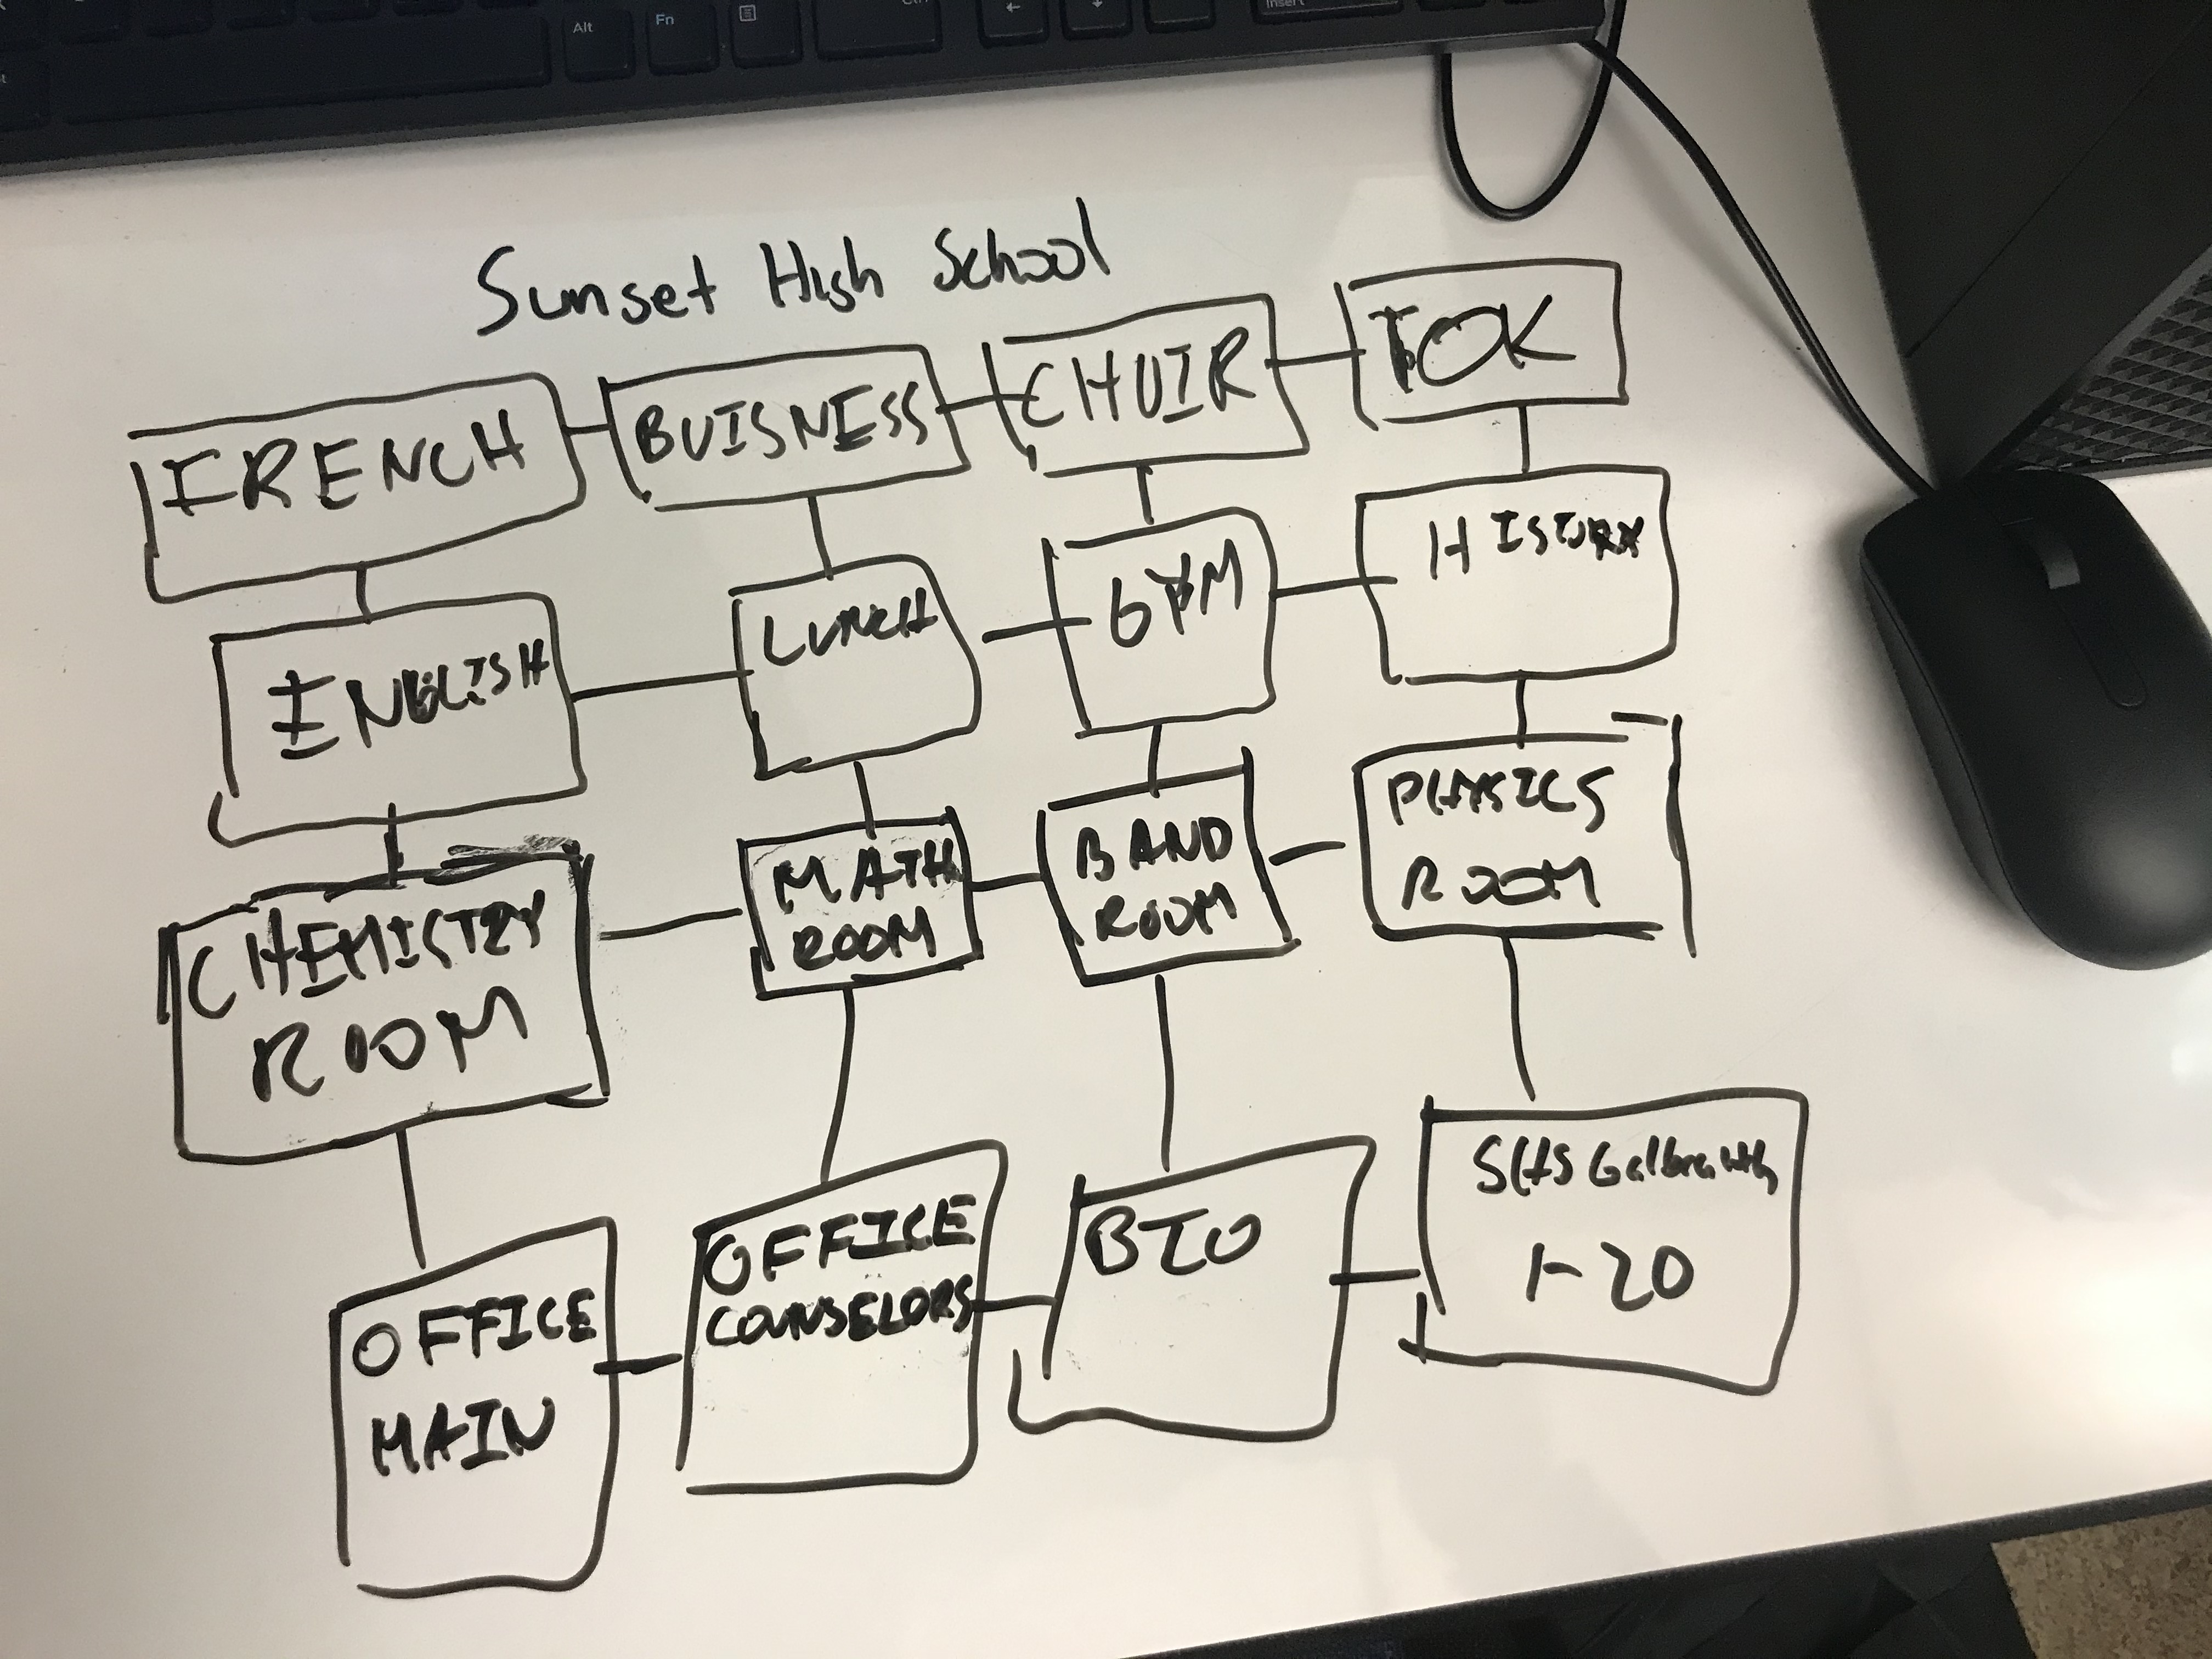 Sunset High School
FRENCH
BUISNESS
CHOIR
TOK
ENGLISH
LUNCH
GYM
HISTORY
CHEMISTRY
ROOM
MATH
ROOM
BAND
ROOM
PHYSICS
ROOM
OFFICE
MAIN
OFFICE
COUNSELORS
BIO
1-20
Alt
Fn
Insert